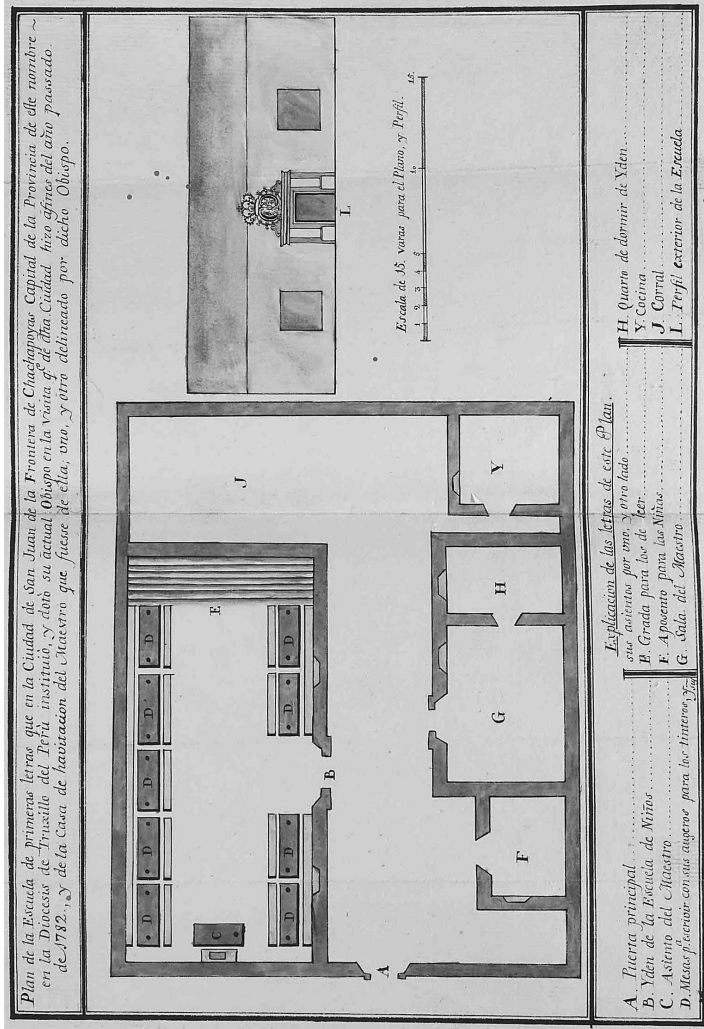 Plan de la Escuela de primeras letras que en la Ciudad de San Juan de la Frontera de Chachapoyas Capital de la Provincia de este nombre ~
en la Diocesis de Truxillo del Perù instituiò, y dotò su actual Obispo en la Visita q.e de dha Ciudad hizo áfines del año passado
de 1782. y de la Casa de havitacion del Maestro que fuesse de ella; uno, y otro delineado por dicho Obispo.
L
Escala de 15. varas para el Plano, y Perfil.
1 2 3 4 5 10 15.
J
E
D D D D D
D D D D
C
B
Y
H
G
F
A
Explicacion de las letras de este Plan.
A. Puerta principal
B. Yden de la Escuela de Niños
C. Asiento del Maestro
D. Mesas p.a escrivir con sus augeros para los tinteros,
sus asientos por uno, y otro lado
E. Grada para los de leer
F. Aposento para las Niñas
G. Sala del Maestro
H. Quarto de dormir de Yden
Y. Cocina
J. Corral
L. Perfil exterior de la Escuela